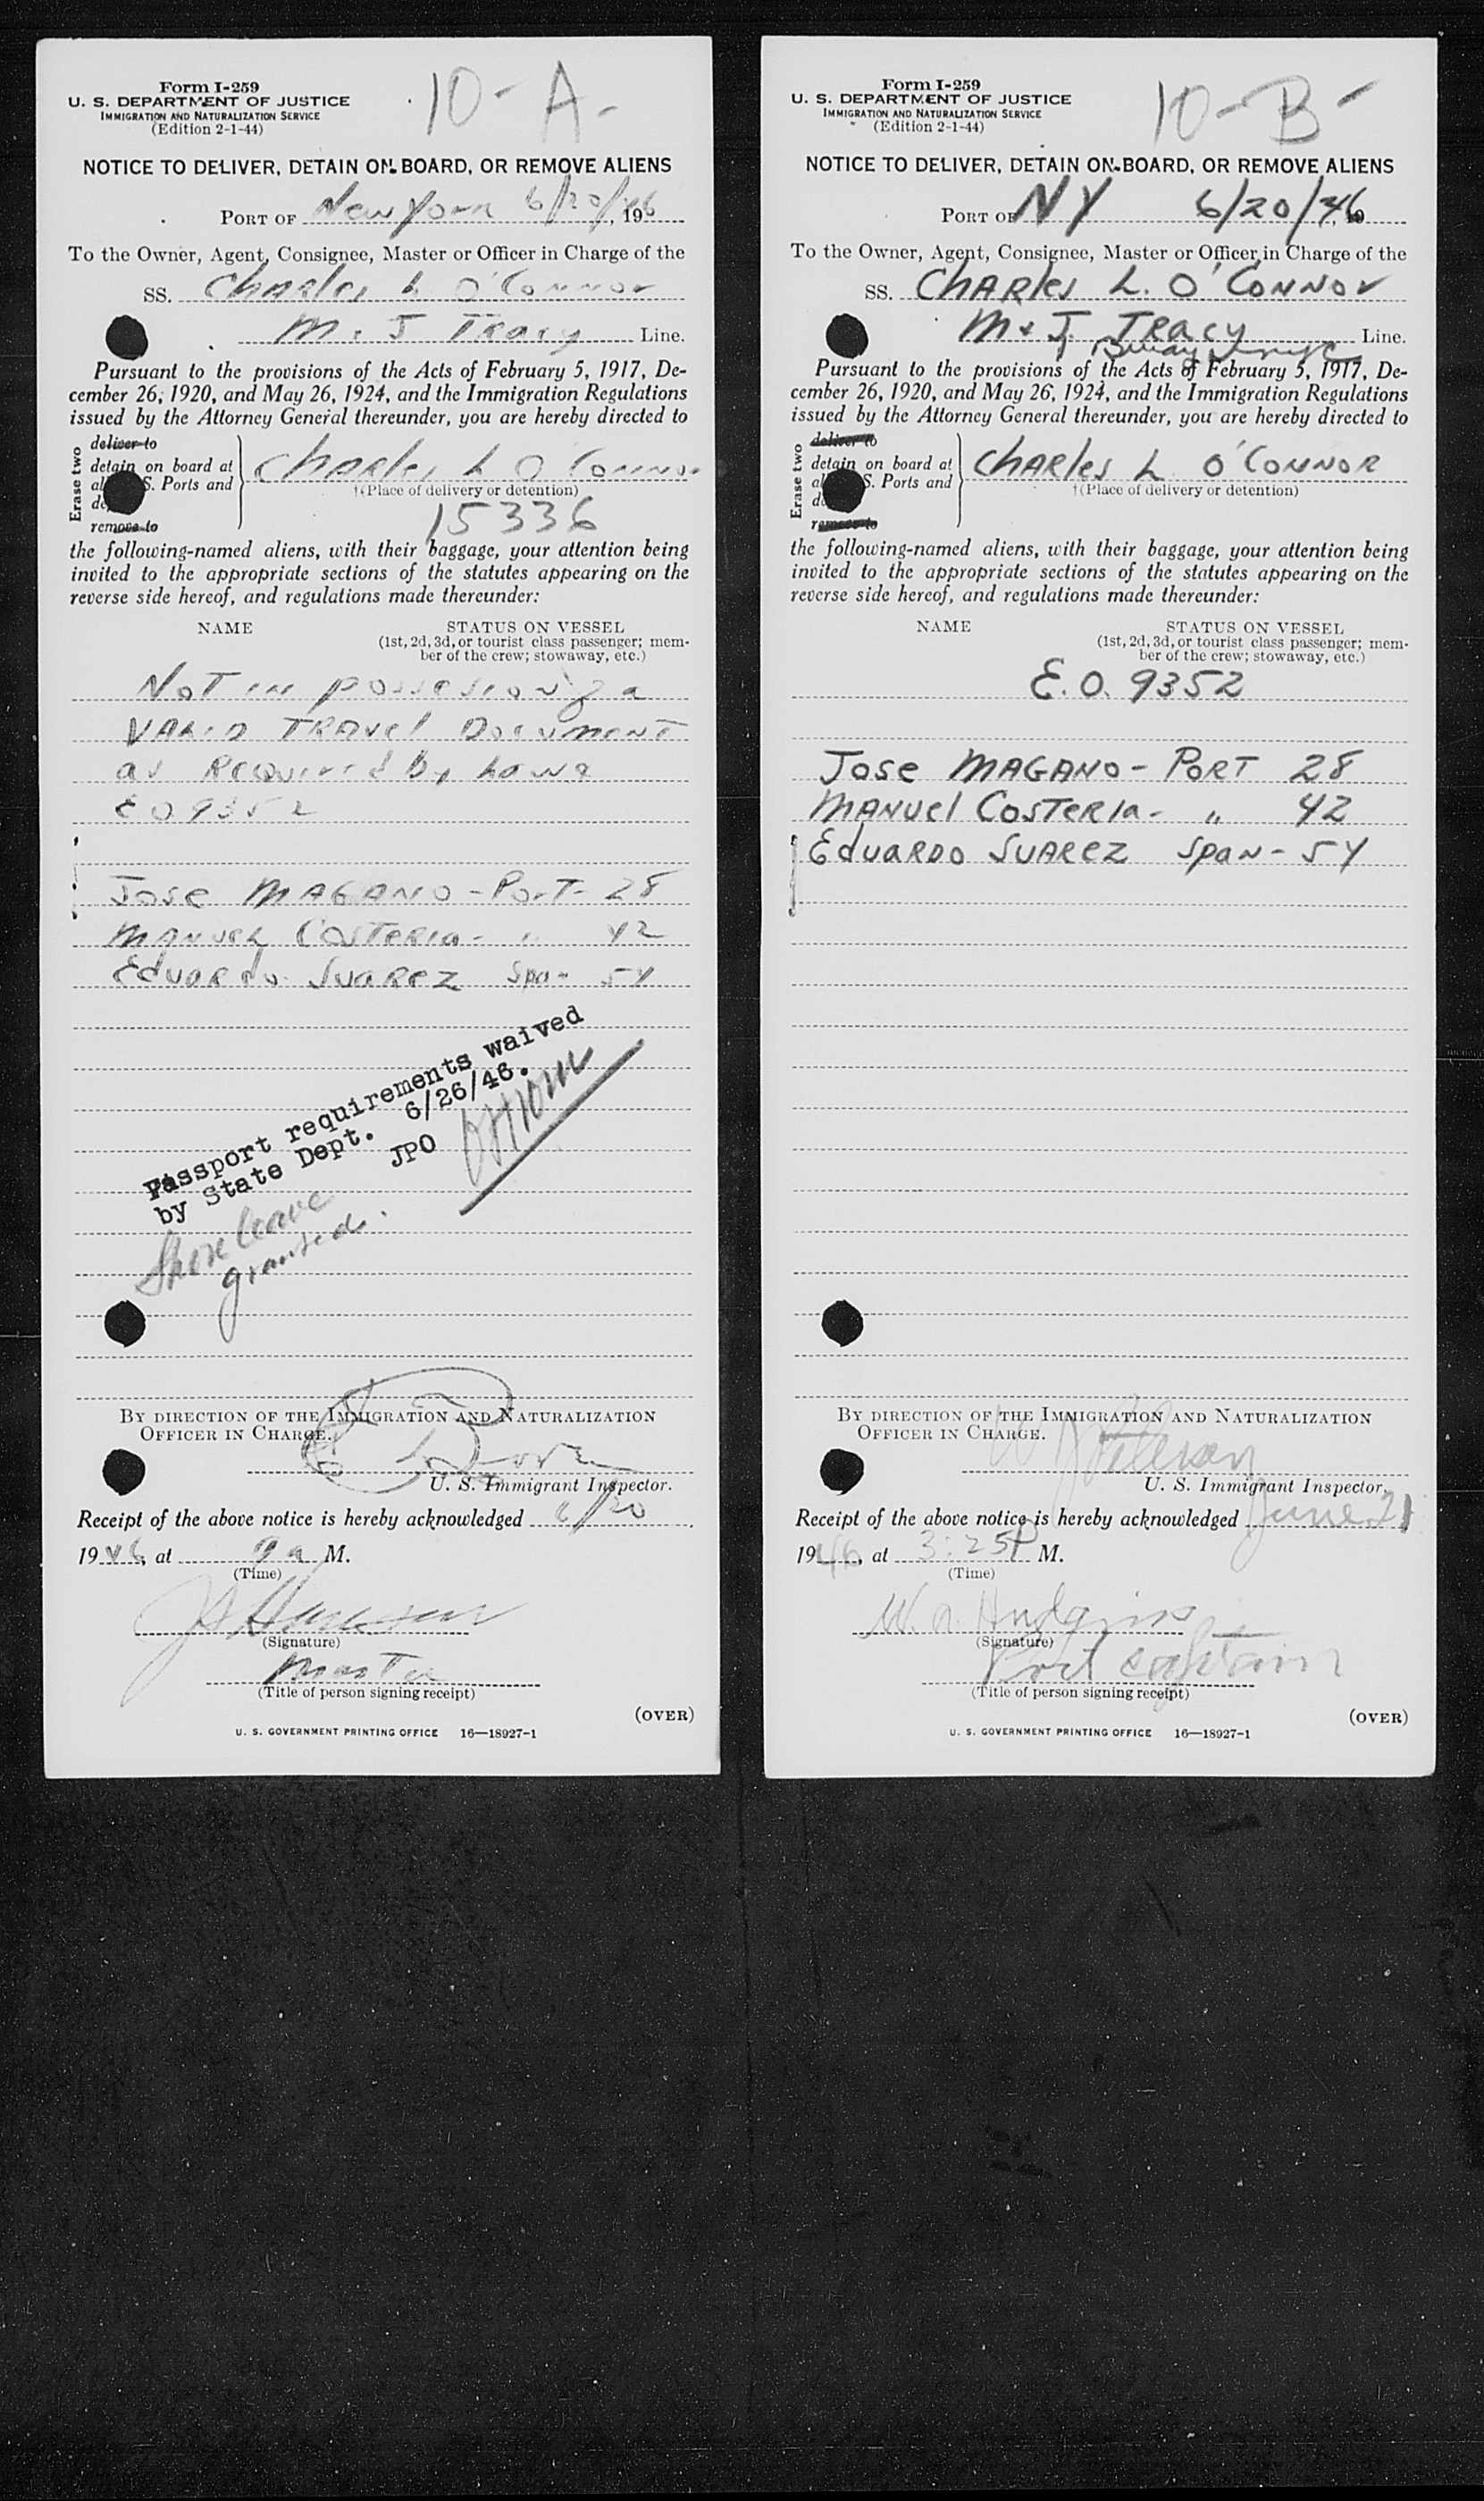 10-A-
Form I-259
U. S. DEPARTMENT OF JUSTICE
IMMIGRATION AND NATURALIZATION SERVICE
(Edition 2-1-44)
NOTICE TO DELIVER, DETAIN ON BOARD, OR REMOVE ALIENS
PORT OF New York 6/20/46, 196
To the Owner, Agent, Consignee, Master or Officer in Charge of the
SS. Charles L O'Connor
M & J Tracy Line.
Pursuant to the provisions of the Acts of February 5, 1917, De-
cember 26, 1920, and May 26, 1924, and the Immigration Regulations
issued by the Attorney General thereunder, you are hereby directed to
Erase two
deliver to
detain on board at
al S. Ports and
de
remove to
Charles L O Connor
†(Place of delivery or detention)
15336
the following-named aliens, with their baggage, your attention being
invited to the appropriate sections of the statutes appearing on the
reverse side hereof, and regulations made thereunder:
NAME STATUS ON VESSEL
(1st, 2d, 3d, or tourist class passenger; mem-
ber of the crew; stowaway, etc.)
Not in possesion of a
VALID TRAVel DocumenT
as Required by Laws
E O 9352
Jose MAGANO - Port - 28
MANUEL CosTeria - " 42
Eduardo Suarez Span - 54
Passport requirements waived
by State Dept. 6/26/46.
JPO
Shore leave
granted.
BY DIRECTION OF THE IMMIGRATION AND NATURALIZATION
OFFICER IN CHARGE.
U. S. Immigrant Inspector.
Receipt of the above notice is hereby acknowledged 6/20,
1946, at 9 a M.
(Time)
(Signature)
Master
(Title of person signing receipt)
(OVER)
U. S. GOVERNMENT PRINTING OFFICE 16—18927-1
10-B-
Form I-259
U. S. DEPARTMENT OF JUSTICE
IMMIGRATION AND NATURALIZATION SERVICE
(Edition 2-1-44)
NOTICE TO DELIVER, DETAIN ON BOARD, OR REMOVE ALIENS
PORT OF NY 6/20/46
To the Owner, Agent, Consignee, Master or Officer in Charge of the
SS. CHARles L. O'CONNOr
M & J. TRACY Line.
Pursuant to the provisions of the Acts of February 5, 1917, De-
cember 26, 1920, and May 26, 1924, and the Immigration Regulations
issued by the Attorney General thereunder, you are hereby directed to
Erase two
deliver to
detain on board at
al S. Ports and
de
remove to
CHARles L O'CONNOR
†(Place of delivery or detention)
the following-named aliens, with their baggage, your attention being
invited to the appropriate sections of the statutes appearing on the
reverse side hereof, and regulations made thereunder:
NAME STATUS ON VESSEL
(1st, 2d, 3d, or tourist class passenger; mem-
ber of the crew; stowaway, etc.)
E.O. 9352
Jose MAGANO - PORT 28
MANUel CosTeRIa - " 42
EdUARDO SUAREZ SPAN - 54
BY DIRECTION OF THE IMMIGRATION AND NATURALIZATION
OFFICER IN CHARGE.
U. S. Immigrant Inspector.
Receipt of the above notice is hereby acknowledged June 21
1946, at 3:25P M.
(Time)
W. A. Hudgins
(Signature)
Port captain
(Title of person signing receipt)
(OVER)
U. S. GOVERNMENT PRINTING OFFICE 16—18927-1